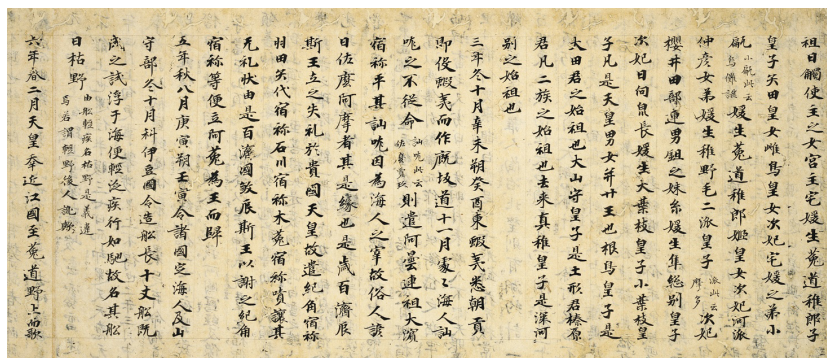 祖日觸使主之女宮主宅媛生菟道稚郎子
皇子矢田皇女雌鳥皇女次妃宅媛之弟小
甂媛生菟道稚郎姬皇女次妃河派
小甂此云
烏儺謎
仲彦女弟媛生稚野毛二派皇子次妃
派此云
摩多
櫻井田部連男鉏之妹糸媛生隼総別皇子
次妃日向泉長媛生大葉枝皇子小葉枝皇
子凡是天皇男女并廿王也根鳥皇子是
大田君之始祖也大山守皇子是土形君榛原
君凡二族之始祖也去来真稚皇子是深河
別之始祖也
三年冬十月辛未朔癸酉東蝦夷悉朝貢
即役蝦夷而作厩坂道十一月處々海人訕
哤之不従命則遣阿曇連祖大濱
訕哤此云
佐麼賣玖
宿祢平其訕哤因為海人之宰故俗人諺
曰佐麼阿摩者其是縁也是歳百濟辰
斯王立之失礼於貴國天皇故遣紀角宿祢
羽田矢代宿祢石川宿祢木菟宿祢嘖讓其
无礼状由是百濟國敓辰斯王以謝之紀角
宿祢等便立阿菟為王而歸
五年秋八月庚寅朔壬寅令諸國定海人及山
守部冬十月科伊豆國令造船長十丈船既
成之試浮于海便輕泛疾行如馳故名其船
曰枯野
由船輕疾名枯野是義違
焉若謂輕野後人訛歟
六年春二月天皇幸近江國至菟道野上而歌